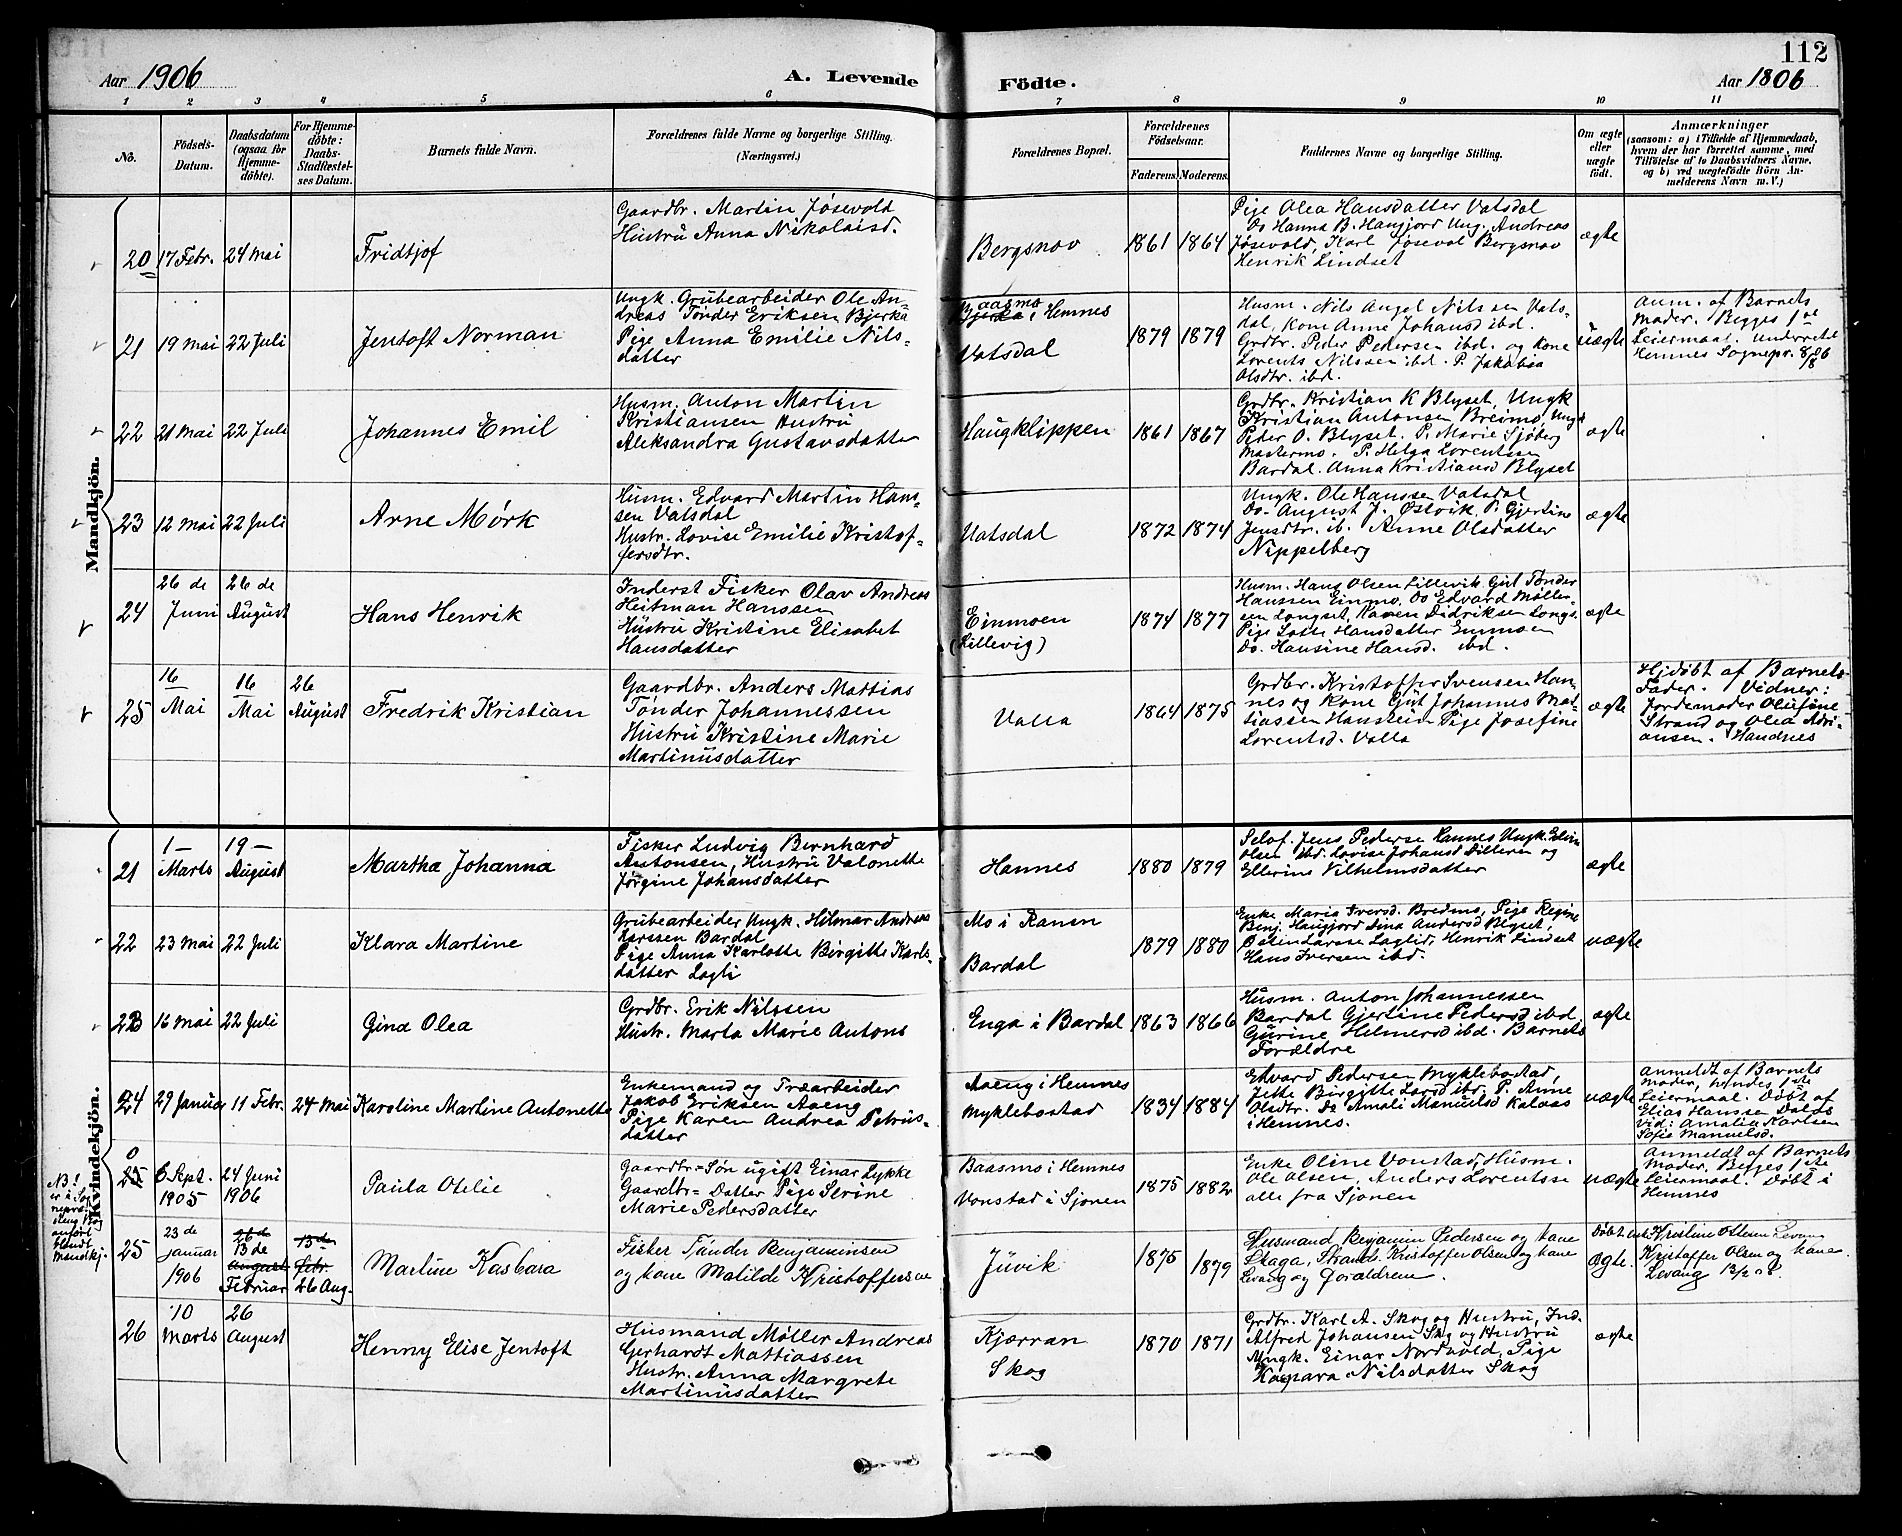 112
Aar 1906
A. Levende
Födte.
Aar 1806
1 2 3 4 5 6 7 8 9 10 11
No.
Födsels-
Datum.
Daabsdatum
(ogsaa for
Hjemme-
döbte).
For Hjemme-
döbte:
Daabs-
Stadfæstel-
ses Datum.
Barnets fulde Navn.
Forældrenes fulde Navne og borgerlige Stilling.
(Næringsvei.)
Forældrenes Bopæl.
Forældrenes
Födselsaar.
Faderens.
Moderens.
Faddernes Navne og borgerlige Stilling.
Om ægte
eller
uægte
födt.
Anmærkninger
(saasom: a) i Tilfælde af Hjemmedaab,
hvem der har forrettet samme, med
Tilföielse af to Daabsvidners Navne,
og b) ved uægtefödte Börn An-
melderens Navn m. V.)
Mandkjön.
20
17 Febr.
24 Mai
Fridtjof
Gaardbr. Martin Jøsevold
Hustru Anna Nikolaisd.
Bergsnov
1861
1864
Pige Olea Hansdatter Vatsdal
Do Hanna B. Haugjord Ung. Andreas
Jøsevold, Karl Jøsevol Bergsnov
Henrik Lindset
ægte
21
19 Mai
22 Juli
Jentoft Norman
Ungk. Grubearbeider Ole An-
dreas Tønder Eriksen Bjerka
Pige Anna Emilie Nils-
datter
Baasmo
i Hemnes
Vatsdal
1879
1879
Husm. Nils Angel Nilssen Vats-
dal, Kone Anne Johansd ibd.
Grdbr. Peder Pedersen ibd. og kone
Lorents Nilssen ibd. P. Jakobia
Olsdtr. ibd.
uægte
Anm. af Barnets
Moder. Begges 1ste
Leiermaal. Underrettet
Hemnes Sognepr. 8/8 06
22
21 Mai
22 Juli
Johannes Emil
Husm. Anton Martin
Kristiansen Hustru
Aleksandra Gustavsdatter
Haugklippen
1861
1867
Grdbr. Kristian K Blyset, Ungk
Kristian Antonsen Breimo, Ungk
Peder O. Blyset. P. Marie Sjøberg
Mastermo. P. Helga Lorentsen
Bardal. Anna Kristiansd Blyset
ægte
23
12 Mai
22 Juli
Arne Mørk
Husm. Edvard Martin Hans-
sen Vatsdal
Hustr. Lovise Emilie Kristof-
fersdtr.
Vatsdal
1872
1874
Ungk. Ole Hanssen Vatsdal
Do- August J. Østvik. P. Gjertine
Jensdtr. ib. Anne Olsdatter
Nippelberg
ægte
24
26 de
Juni
26 de
August
Hans Henrik
Inderst Fisker Olav Andreas
Heitman Hanssen
Hustru Kristine Elisabet
Hansdatter
Einmoen
(Lillevig)
1874
1877
Husm. Hans Olsen Lillevik Gut Tønder
Hanssen Einmo, Do Edvard Møller-
sen Longset, Didriksen Longs.
Pige Lotte Hansdatter Einmoen
Do. Hansine Hansd. ibd.
ægte
25
16
Mai
16
Mai
26
August
Fredrik Kristian
Gaardbr. Anders Mattias
Tønder Johannessen
Hustru Kristine Marie
Martinusdatter
Valla
1864
1875
Grdbr. Kristoffer Svensen Han-
nes og Kone Gut Johannes Mat-
tiassen Pige Josefine
Lorentsd. Valla
ægte
Hjdøbt af Barnets
Fader. Vidner:
Jordemoder Olufine
Strand og Olea Adri-
ansen. Handnes
Kvindekjön.
21
1 –
Marts
19 –
August
Martha Johanna
Fisker Ludvig Bernhard
Antonsen, Hustru Valonette
Jørgine Johansdatter
Hannes
1880
1879
Selvf. Jens Pederse Hannes Ungk. Edvin
Olsen ibd. Lovise Johansd Dilleren og
Ellerine Vilhelmsdatter
ægte
22
23 Mai
22 Juli
Klara Martine
Grubearbeider Ungk. Hilmar Andreas
Larssen Bardal
Pige Anna Karlotte Birgitte Karls-
datter Lagli
Mo i Ranen
Bardal
1879
1880
Enke Maria Iversd. Bredmo, Pige Regine
Benj. Haugjord Dina Andersd Blyset,
Østen Larsse Laglid, Henrik Lindset
Hans Iversen ibd.
uægte
23
16 Mai
22 Juli
Gina Olea
Grdbr. Erik Nilssen
Hustr. Marta Marie Antons
Enga i Bardal
1863
1866
Husm. Anton Johannessen
Bardal Gjertine Pedersd ibd.
Gurine Helmersd ibd. Barnets
Forældre
ægte
24
29 Januar
11 Febr.
24 Mai
Karoline Martine Antonette
Enkemand og Træarbeider
Jakob Eriksen Aaeng
Pige Karen Andrea Petrus-
datter
Aaeng i Hemnes
Myklebostad
1834
1884
Edvard Pedersen Myklebostad,
Jette Birgitte Larsd ibd, P. Anne
Olsdtr. Do Amali Manuelsd Kalvas
i Hemnes.
uægte
Anmeldt af Barnets
Moder, hendes 1ste
Leiermaal. Døbt af
Elias Hanssen Dalos
Vid: Amalia Karlsen
Sofie Manuelsd.
NB!
blandt
Mandkj.
0
25
6 Sept.
1905
24 Juni
1906
Paula Otelie
Gaardbr=Søn ugift Einar Lykke
Gaardbr=Datter Pige Serine
Marie Pedersdatter
Baasmo i Hemnes
Vonstad i Sjonen
1875
1882
Enke Oline Vonstad, Husm.
Ole Olsen, Anders Lorentsse
alle fra Sjonen
uægte
Anmeldt af Barnets
Moder, Begges 1ste
Leiermaal. Døbt i
Hemnes
25
23 de
Januar
1906
26 de
13 de
August
Februar
13 de
febr.
26 Aug-
Martine Kasbara
Fisker Tønder Benjaminsen
og kone Matilde Kristoffersen
Juvik
1875
1879
Husmand Benjamin Pedersen og kone
Skaga, Strand. Kristoffer Olsen og kone
Levang og Forældrene.
ægte.
Kristine Olsen Levang
Kristoffer Olsen og kone
Levang 13/2 06.
26
10
Marts
26
August
Henny Elise Jentoft
Husmand Møller Andreas
Gerhardt Mattiassen
Hustr. Anna Margrete
Martinusdatter
Kjærran
Skog
1870
1871
Grdbr. Karl A. Skog og Hustru, Ind.
Alfred Johansen Skog og Hustru
Ungk. Einar Nordvold, Pige
Kaspara Nilsdatter Skog
ægte